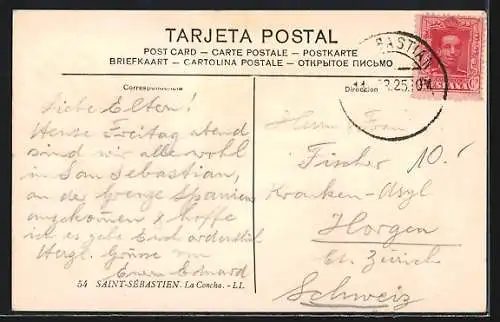 TARJETA POSTAL
POST CARD — CARTE POSTALE — POSTKARTE
BRIEFKAART — CARTOLINA POSTALE — ОТКРЫТОЕ ПИСЬМО
Correspondencia
Direccion
BASTIAN
25
ESPAÑA
Liebe Eltern!
Heute Freitag abend
sind wir alle wohl
in San Sebastian,
an der Grenze Spaniens
angekommen & hoffe
ich es gehe Euch ordentlich
Herzl. Grüsse von
Eurem Eduard
Herrn Frau
Fischer
10.-
Kranken-Asyl
Horgen
Ct. Zürich
Schweiz
54 SAINT-SÉBASTIEN. La Concha. - LL.